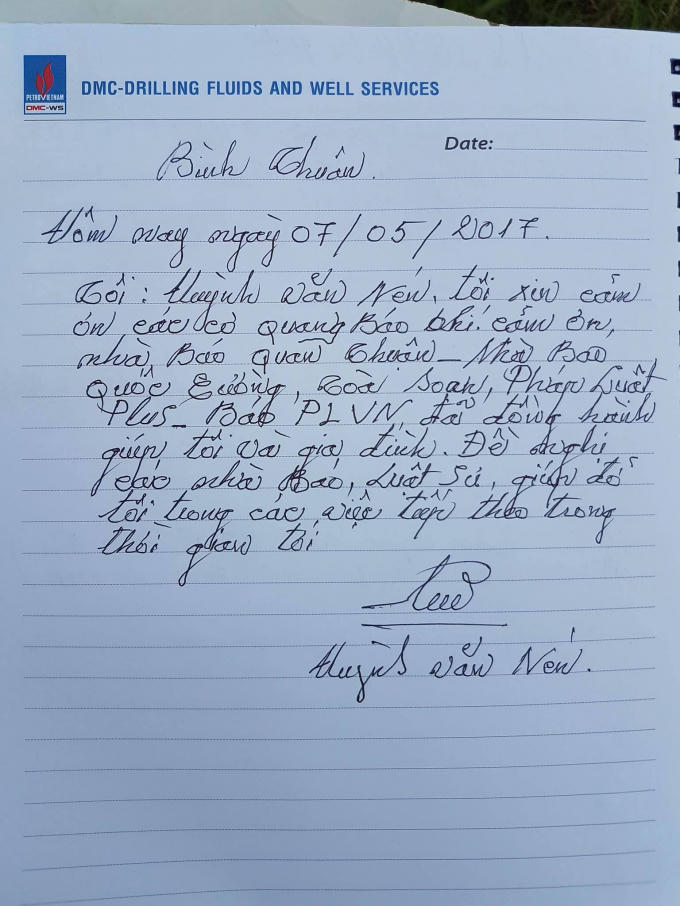 PETROVIETNAM
DMC-WS
DMC-DRILLING FLUIDS AND WELL SERVICES
Date:
Bình Thuân.
Hôm nay ngày 07/05/2017.
Tôi: Huỳnh văn Nén, tôi xin cảm
ơn các cơ quang Báo chí. cảm ơn,
nhà Báo quân Thuân - Nhà Báo
Quốc Cường, Toà soạn, Pháp Luật
Plus - Báo PLVN, đã đồng hành
giúp tôi và gia đình. Đề nghị
các nhà Báo, Luật Sư, giúp đỡ
tôi trong các việc tiếp theo trong
thời gian tới
Huỳnh văn Nén.